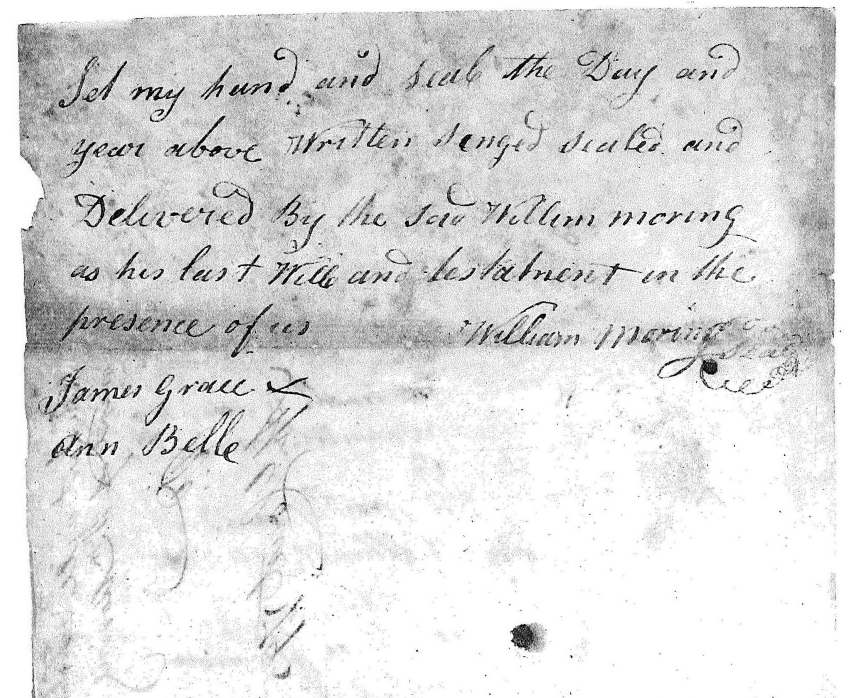 Set my hand and seal the Day and
year above Written senged sealed and
Delivered By the said Willim moring
as his last Will and testatment in the
presence of us William Moring
Seal
James Grace
Ann Belle